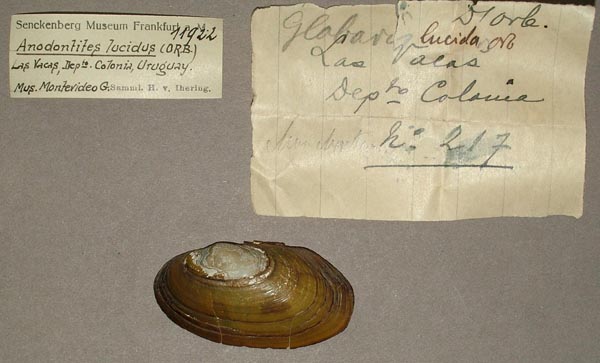 Senckenberg Museum Frankfurt M.
41922
Anodontites lucidus (ORB.)
Las Vacas, Depto. Colonia, Uruguay.
Mus. Montevideo G. Samml. H. v. Ihering.
D'Orb.
Glabaris lucida orb
Las Vacas
Depto Colonia
No. 217